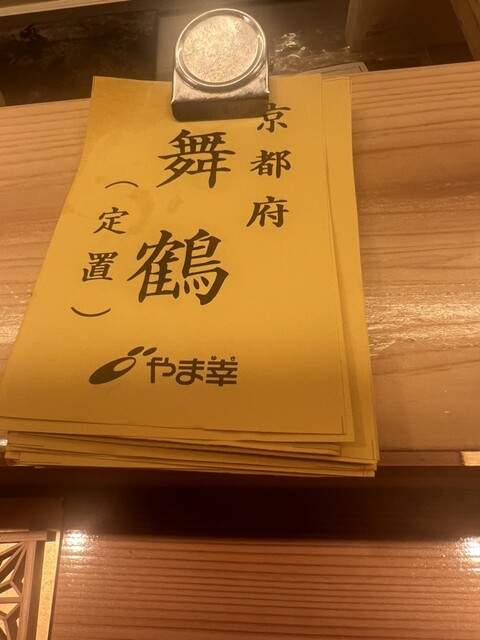 京都府
舞鶴
（定置）
やま幸